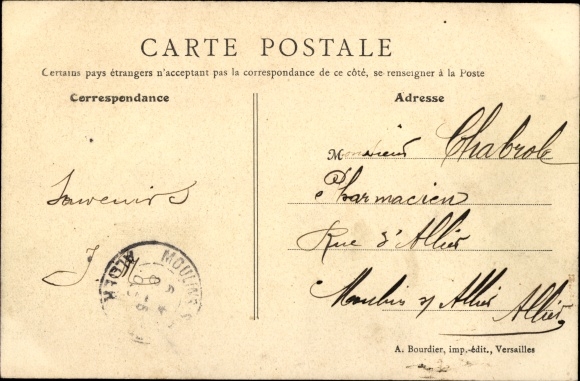 CARTE POSTALE
Certains pays étrangers n'acceptent pas la correspondance de ce côté, se renseigner à la Poste
Correspondance
Adresse
Monsieur Chabrol
Pharmacien
Rue d'Allier
Moulins s/ Allier
Allier
Souvenirs
J.
MOULINS
ALLIER
A. Bourdier, imp.-édit., Versailles